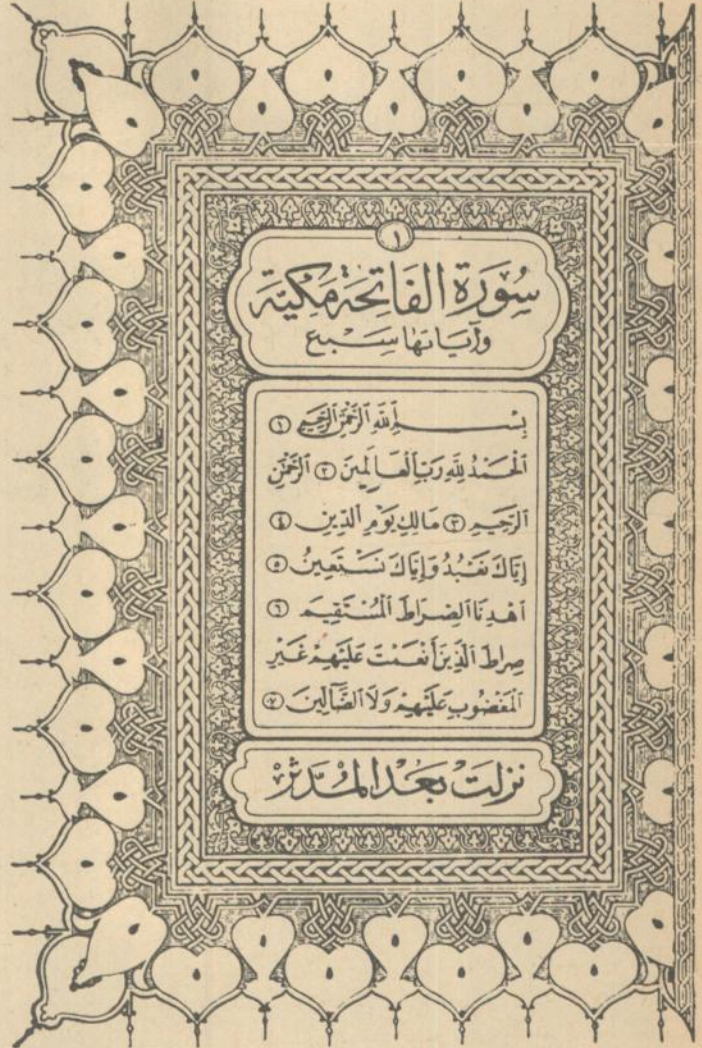 ١
سُورَة الفَاتِحَة مَكِّيَّة
وآيَاتهَا سَبْع
بِسْمِ اللَّهِ الرَّحْمَٰنِ الرَّحِيمِ ١
الْحَمْدُ لِلَّهِ رَبِّ الْعَالَمِينَ ٢ الرَّحْمَٰنِ
الرَّحِيمِ ٣ مَالِكِ يَوْمِ الدِّينِ ٤
إِيَّاكَ نَعْبُدُ وَإِيَّاكَ نَسْتَعِينُ ٥
اهْدِنَا الصِّرَاطَ الْمُسْتَقِيمَ ٦
صِرَاطَ الَّذِينَ أَنْعَمْتَ عَلَيْهِمْ غَيْرِ
الْمَغْضُوبِ عَلَيْهِمْ وَلَا الضَّآلِّينَ ٧
نَزَلَتْ بَعْدَ المُدَّثِّرْ